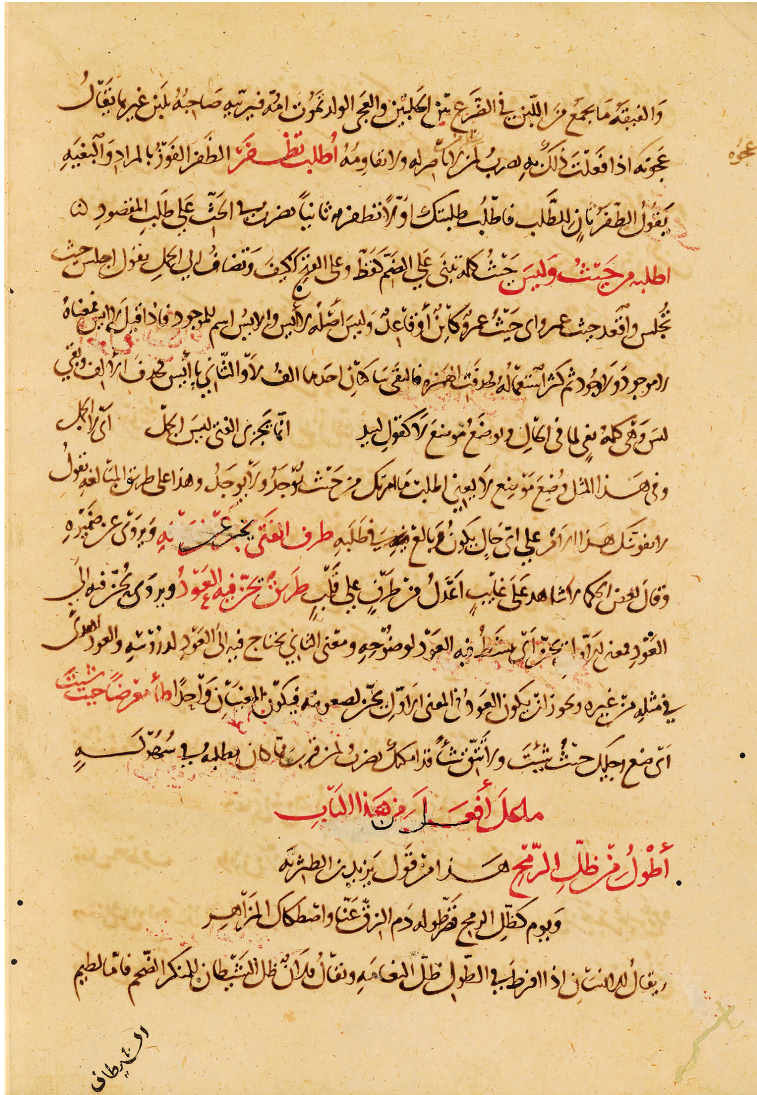 والفيقة ما يجمع من اللبن في الضرع بين الحلبتين والعجي الولد تموت امه فيربيه صاحبه بلبن غيرها يقال
عجوه
عجوته اذا فعلت ذلك به يضرب لمن لا ناصر له ولا يقاومه اطلب تظفر الظفر الفوز بالمراد والبغية
يقول الظفر ثان للطلب فاطلب طلبتك اولا تظفر به ثانيا يضرب في الحث على طلب المقصود
اطلبه من حيث وليس حيث كلمة تبنى على الضم كقط وعلى الفتح ككيف وتضاف الى الجمل يقول اجلس حيث
تجلس واقعد حيث عمرو اي حيث عمرو كائن او قاعد وليس اصله لا أيس والايس اسم للموجود فاذا قيل لا ايس فمعناه
لا موجود ولا وجود ثم كثر استعماله فحذفت الهمزة فالتقى ساكنان احدهما الف لا والثاني يا أيس فحذف الالف وبقي
ليس وهي كلمة نفي لما في الحال ويوضع موضع لا كقول لبيد انما يجزي الفتى ليس الجمل اي لا الجمل
وفي هذا المثل وضع موضع لا يعني اطلب ما امرتك من حيث يوجد ولا يوجد وهذا على طريق المبالغة يقول
لا يفوتنك هذا الامر على اي حال يكون وبالغ في طلبه طرف الفتى يخبر عن ويروى عن ضميره
وقال بعض الحكما لا شاهد على غايب اعدل من طرف على قلب طريق يحن فيه العود ويروى يحن فيه الى
العود فمعنى الاول يحن اي ينشط فيه العود لوضوحه ومعنى الثاني يحتاج فيه الى العود لدروسه والعود اهدى
في مثله من غيره ويجوز ان يكون العود في المعنى الاول يحن لصعوبته فيكون المعنيان واحدا طأ معرضا حيث شئت
اي ضع رجليك حيث شئت ولا تتق شيا قد امكنك يضرب لمن قرب مما كان يطلبه في سهولة
ما على أفعل من هذا الباب
أطول من ظل الرمح هذا من قول يزيد بن الطثرية
ويوم كظل الرمح قصر طوله دم الزق عنا واصطكاك المزاهر
ويقال للانسان اذا افرط في الطول ظل النعامة ويقال فلان ظل الشيطان للمنكر الضخم فاما لطيم
الشيطان